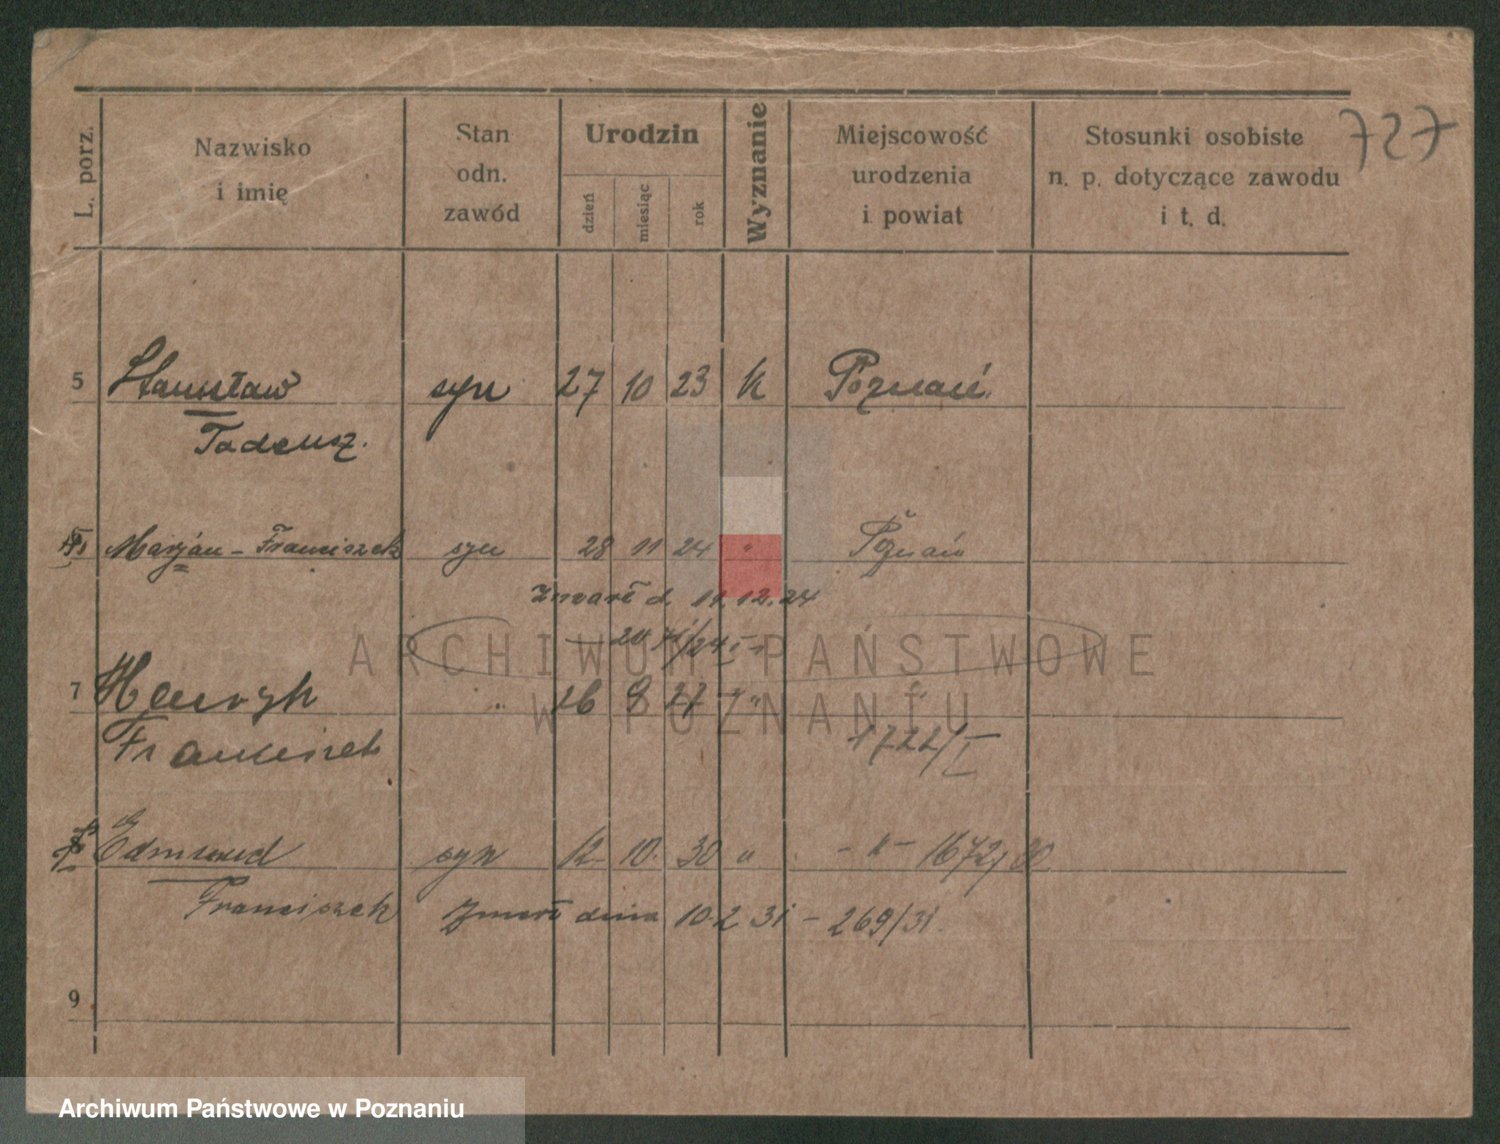 727
L. porz.
Nazwisko i imię
Stan odn. zawód
Urodzin
dzień
miesiąc
rok
Wyznanie
Miejscowość urodzenia i powiat
Stosunki osobiste n. p. dotyczące zawodu i t. d.
5 Stanisław syn 27 10 23 k Poznań.
Tadeusz.
Marjan - Franciszek syn 28 11 24 " Poznań
Zmarł d. 11.12.24
ARCHIWUM PAŃSTWOWE
7 Henryk " 16 9 27 " "
W POZNANIU
Franciszek 1722/I
Edmund syn 12 10. 30 " - " - 1672/30
Franciszek Zmarł dnia 10.2 31 - 269/31.
9
Archiwum Państwowe w Poznaniu